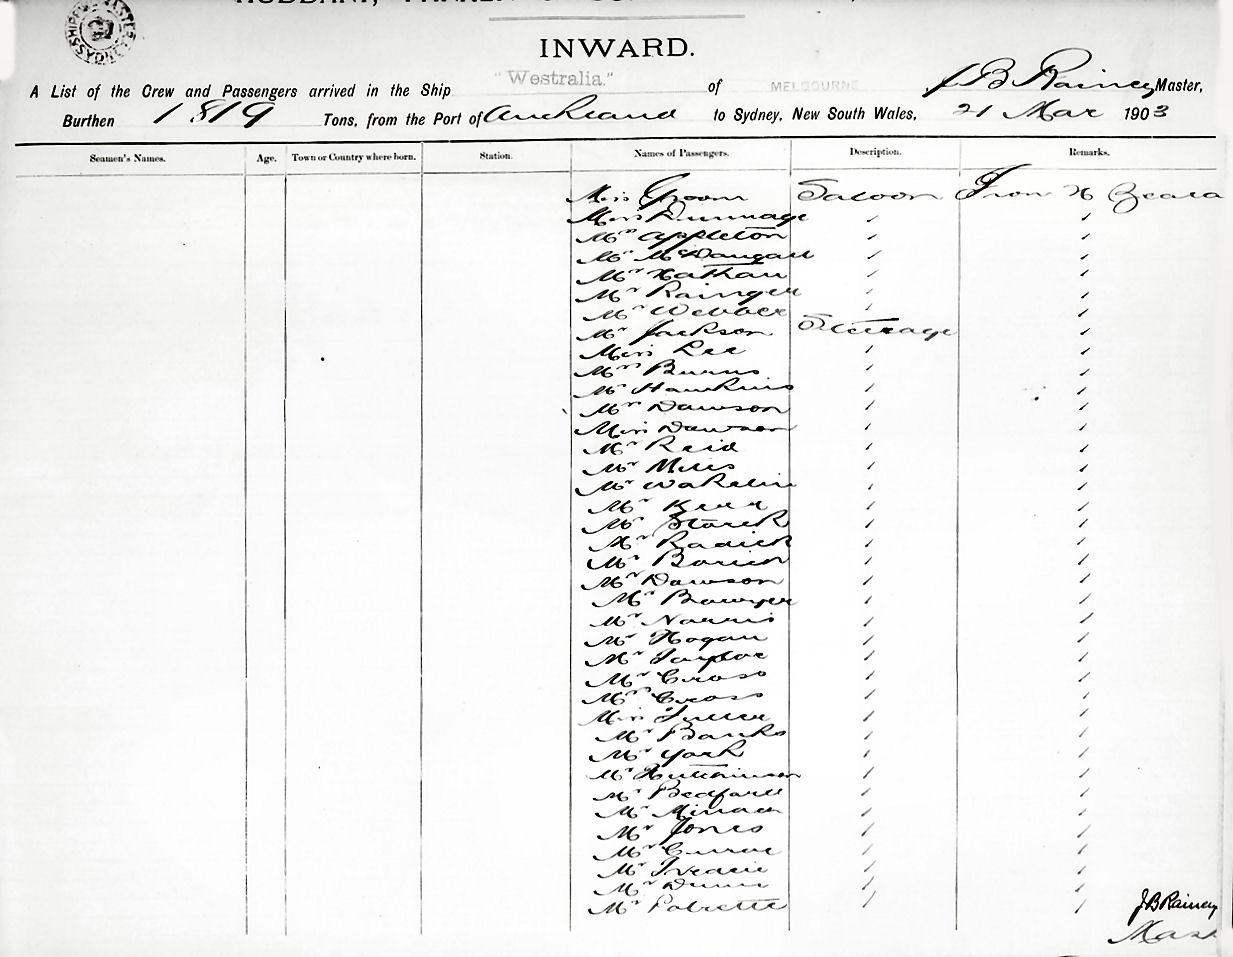 INWARD.
A List of the Crew and Passengers arrived in the Ship "Westralia." of MELBOURNE J B Rainey Master,
Burthen 1819 Tons, from the Port of Auckland to Sydney, New South Wales, 21 Mar 1903
Seamen's Names. Age. Town or Country where born. Station. Names of Passengers. Description. Remarks.
Miss Groom Saloon From N Zeala
Miss Dunnage " "
Mrs Appleton " "
Mr McDougall " "
Mrs Nathan " "
Mr Rainger " "
Mr Webber " "
Mr Jackson Steerage "
Miss Lee " "
Mrs Burns " "
Mr Hawkins " "
Mrs Dawson " "
Miss Dawson " "
Mr Reid " "
Mr " "
Mr Wakelin " "
Mr " "
Mr " "
Mr Radich " "
Mr Borich " "
Mr Dawson " "
Mr Bowyer " "
Mr Norris " "
Mr Hogan " "
Mr Taylor " "
Mr Cross " "
Mrs Cross " "
Miss " "
Mr Banks " "
Mr York " "
Mr Hutchinson " "
Mr " "
Mr " "
Mr Jones " "
Mr " "
Mr " "
Mr Dunn " "
Mr " "
J B Rainey
Mast